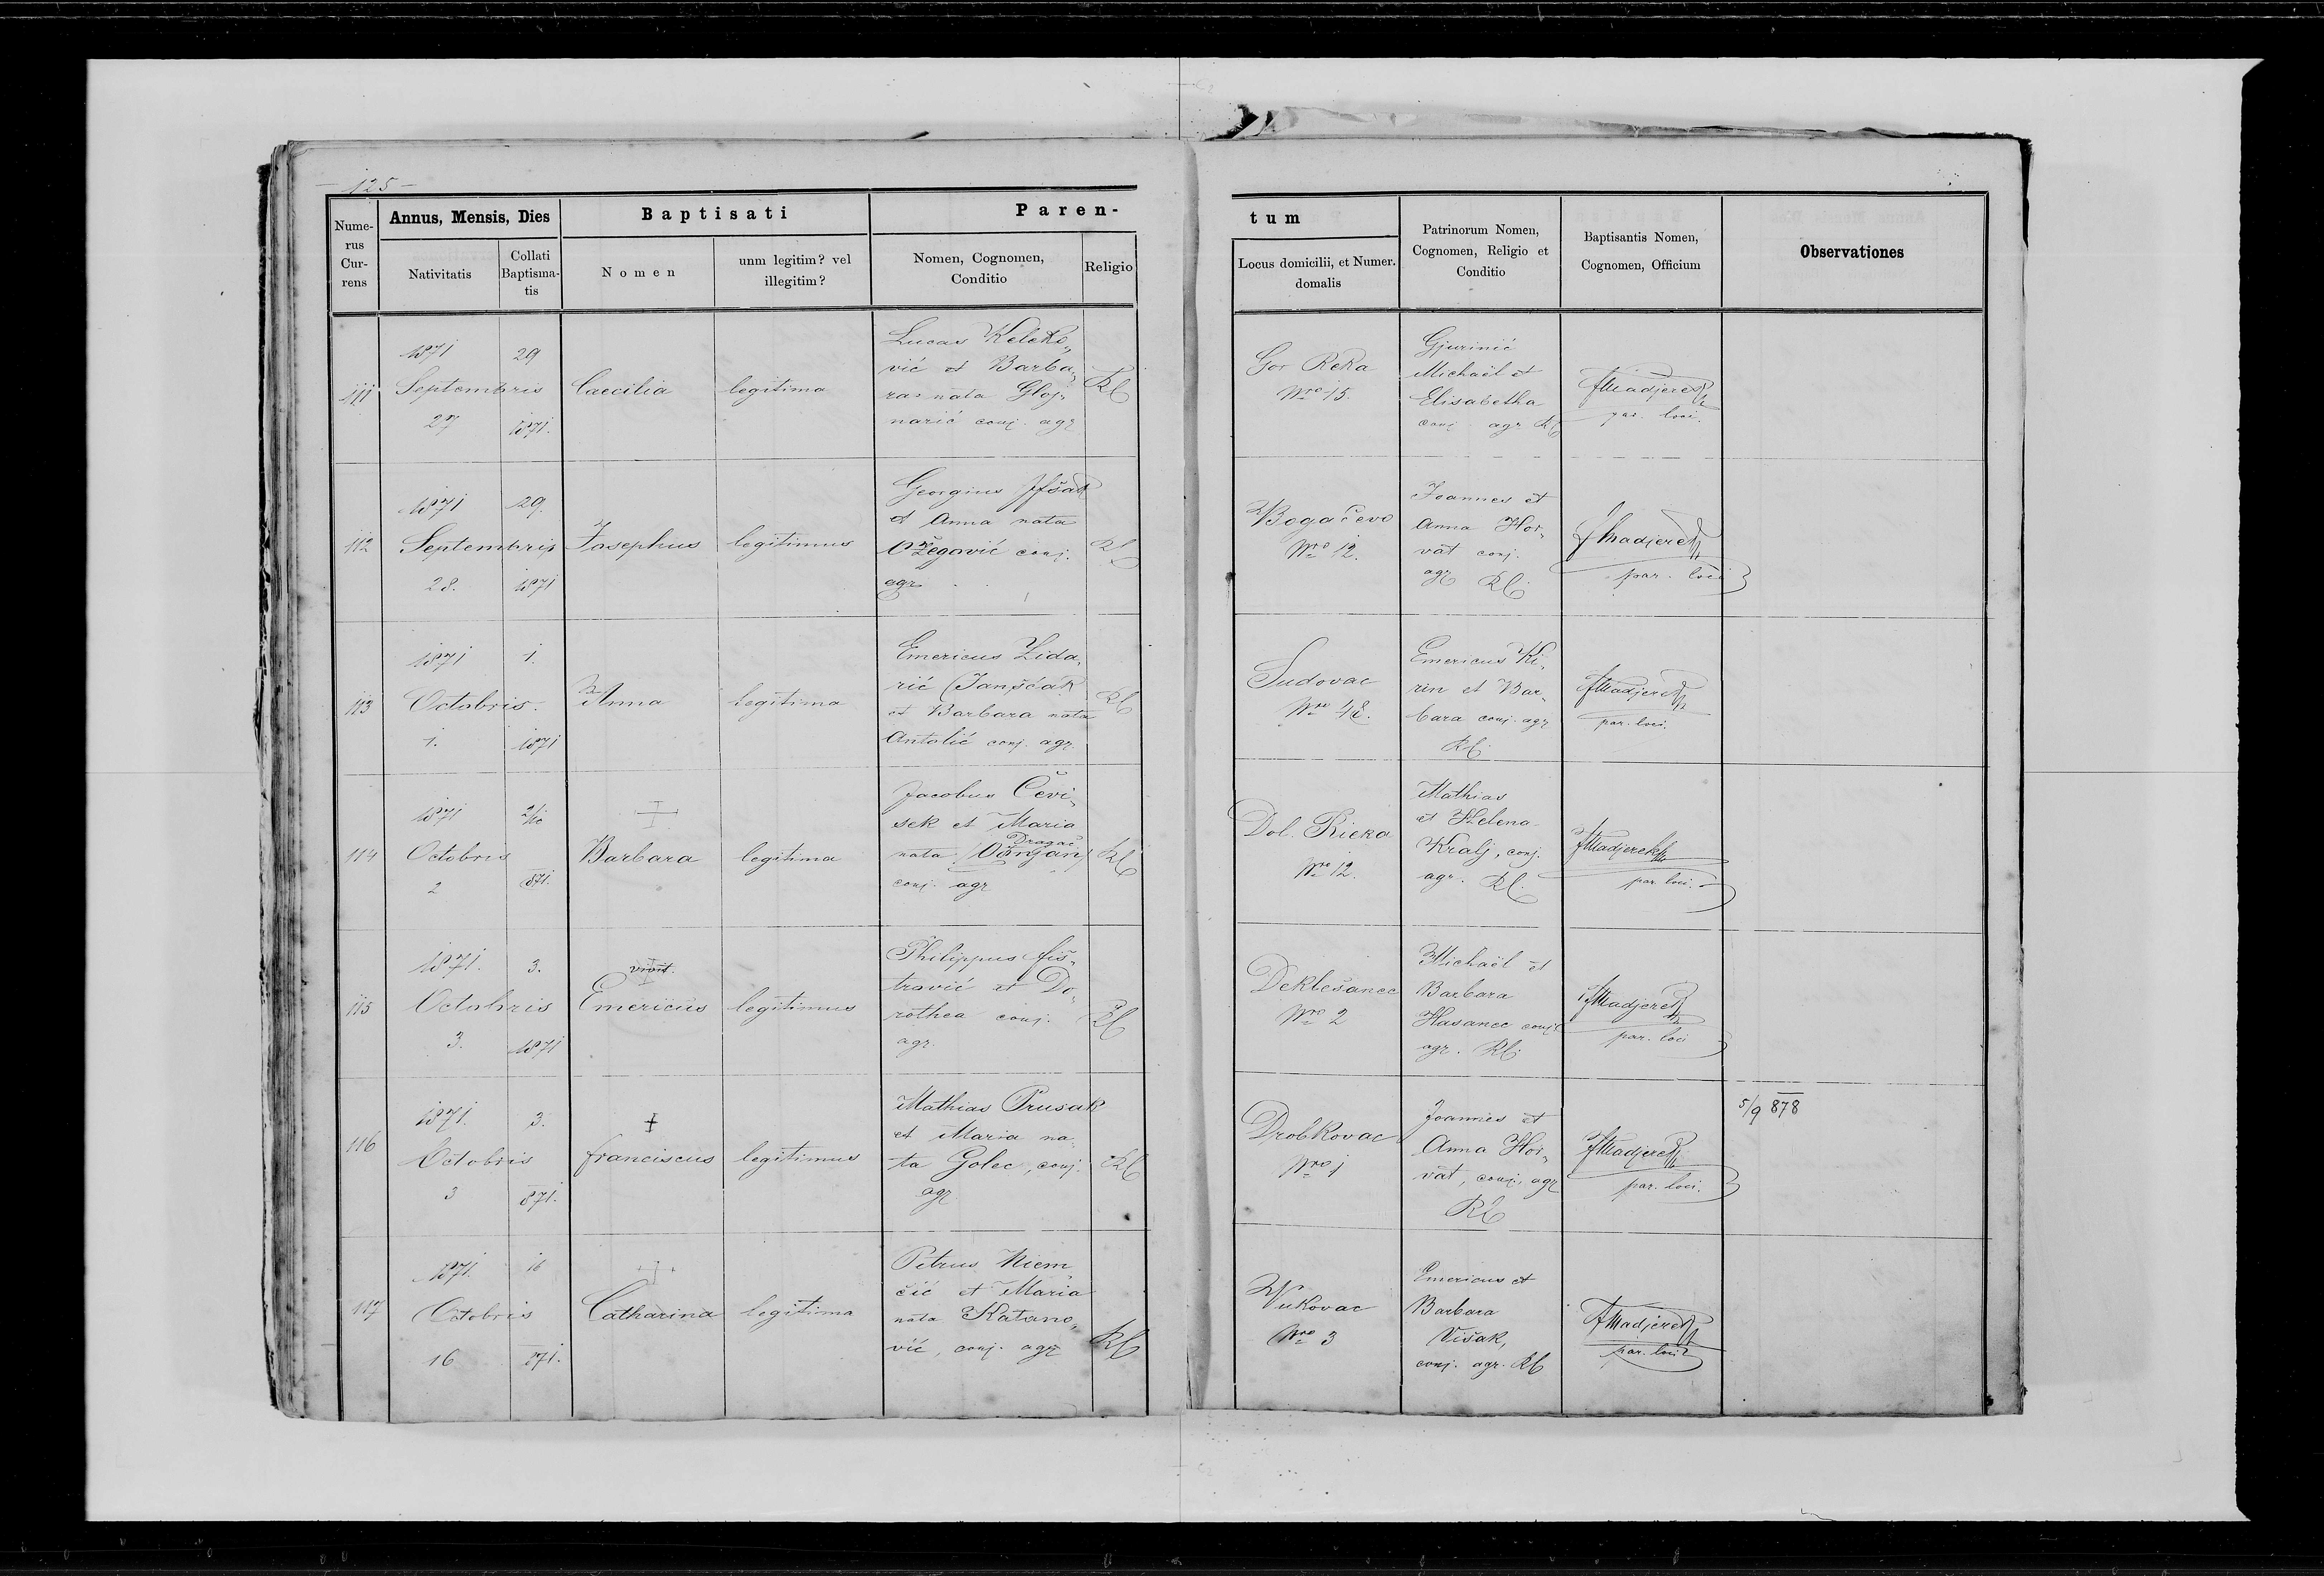 — 125 —
Nume-
rus
Cur-
rens
Annus, Mensis, Dies
Nativitatis
Collati
Baptisma-
tis
Baptisati
Nomen
unm legitim? vel
illegitim?
Paren-
Nomen, Cognomen,
Conditio
Religio
tum
Locus domicilii, et Numer.
domalis
Patrinorum Nomen,
Cognomen, Religio et
Conditio
Baptisantis Nomen,
Cognomen, Officium
Observationes
111
1871
Septembris
27
29
1871.
Caecilia
legitima
Lucas Keleko„
vić et Barba„
ra nata Gloj„
narić conj. agr
RC
Gor Reka
Nro 15.
Gjurinić
Michaël et
Elisabetha
conj agr RC
FMadjerek
par. loci.
112
1871
Septembris
28.
29.
1871
Josephus
legitimus
Georgius
et Anna nata
Ožegović conj.
agr
RC
Bogačevo
Nro 12.
Joannes et
Anna Hor„
vat conj.
agr RC
FMadjerek
par. loci
113
1871
Octobris.
1.
1.
1871
Anna
legitima
Emericus Zida„
rić (Janščak
et Barbara nata
Antolić conj. agr.
RC
Sudovac
Nro 48.
Emericus Ki„
rin et Bar„
bara conj. agr
RC
FMadjerek
par. loci.
114
1871
Octobris
2
2/10
871.
Barbara
legitima
Jacobus Čevi„
sek et Maria
Dragač
nata
conj. agr
RC
Dol. Rieka
Nro 12.
Mathias
et Helena
Kralj, conj.
agr. RC.
FMadjerek
par loci.
115
1871.
Octobris
3.
3.
1871
vivit.
Emericus
legitimus
Philippus fiš„
trović et Do„
rothea conj.
agr.
RC
Deklešanec
Nro 2
Michaël et
Barbara
Hasanec conj
agr. RC.
FMadjerek
par. loci
116
1871.
Octobris
3
3.
871.
franciscus
legitimus
Mathias Prusak
et Maria na„
ta Golec, conj.
agr
RC
Drobkovac
Nro 1
Joannes et
Anna Hor„
vat, conj. agr
RC
FMadjerek
par. loci.
5/9 878
117
1871.
Octobris
16
16
871.
Catharina
legitima
Petrus Niem„
čić et Maria
nata Katano„
vić, conj. agr
RC
Vukovac
Nro 3
Emericus et
Barbara
Višak,
conj. agr. RC
FMadjerek
par. loci